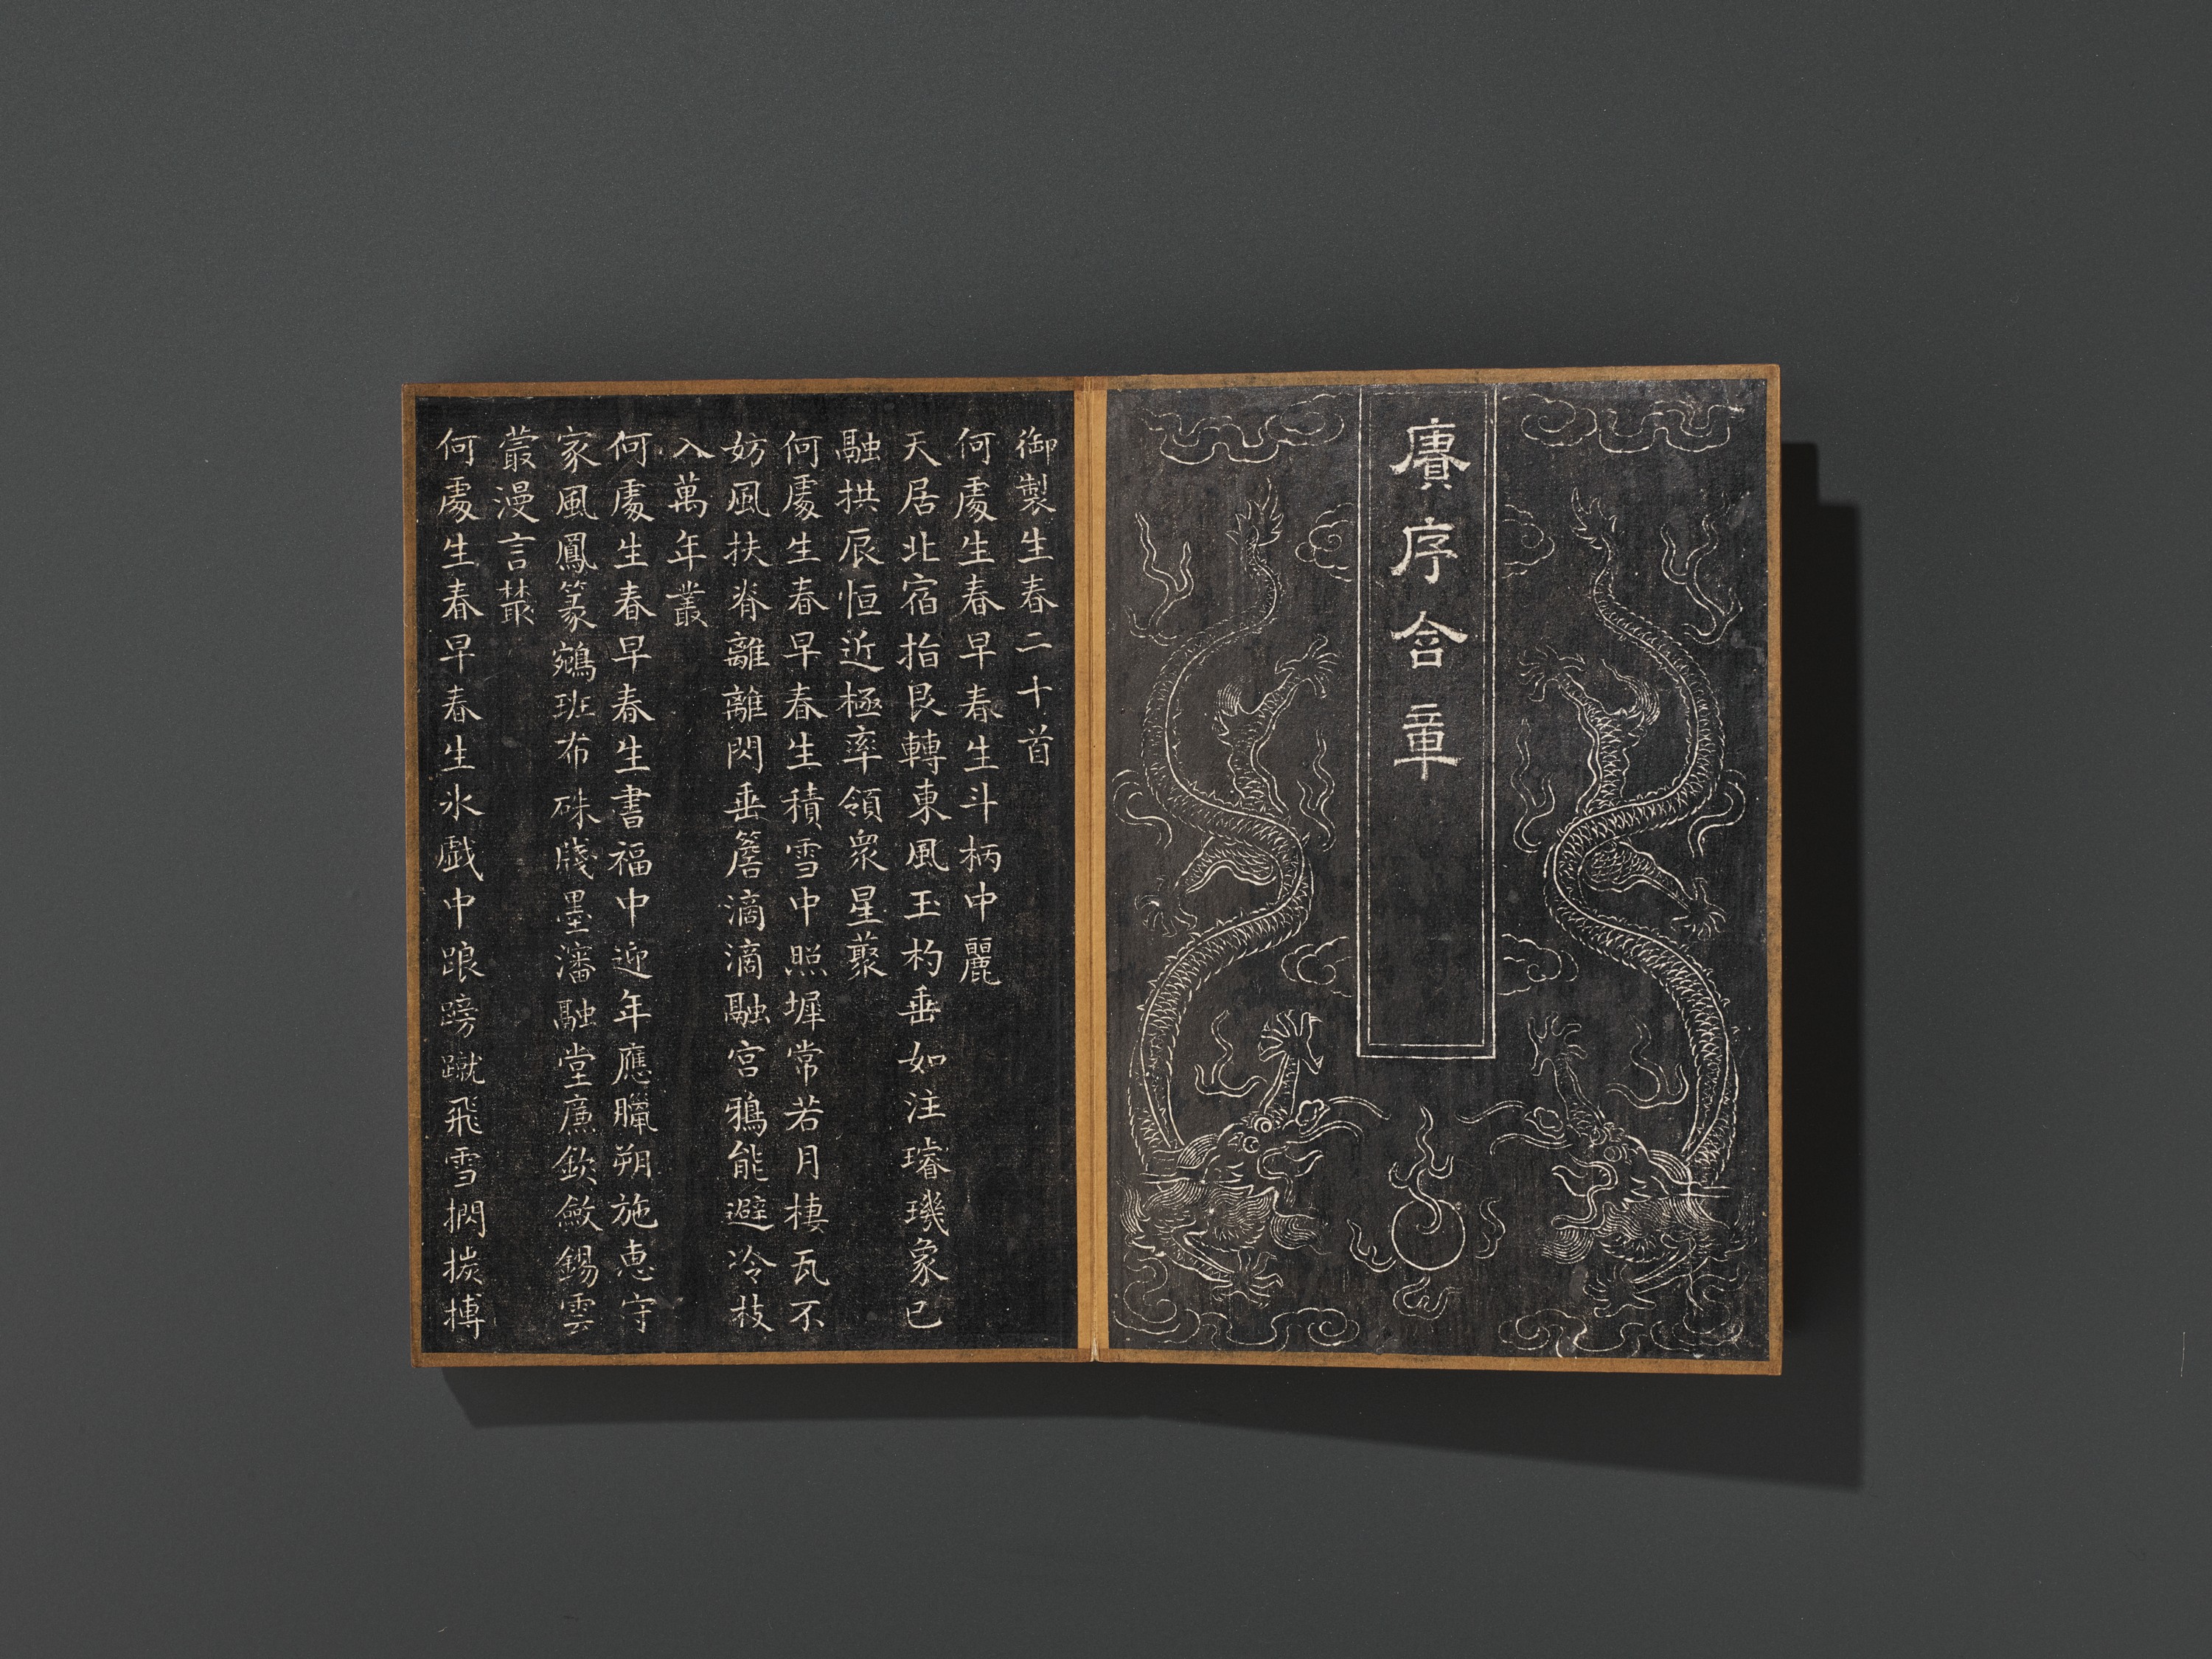 賡序合章
御製生春二十首
何處生春早春生斗柄中麗
天居北宿指艮轉東風玉杓垂如注璿璣象已
融拱辰恒近極率領衆星藂
何處生春早春生積雪中照墀常若月棲瓦不
妨風扶脊離離閃垂簷滴滴融宮鴉能避冷枝
入萬年叢
何處生春早春生書福中迎年應臘朔施恵守
家風鳳篆鵷班布硃牋墨瀋融堂廉欽斂錫雲
蒙漫言藂
何處生春早春生氷戲中踉蹡蹴飛雪挒捘搏